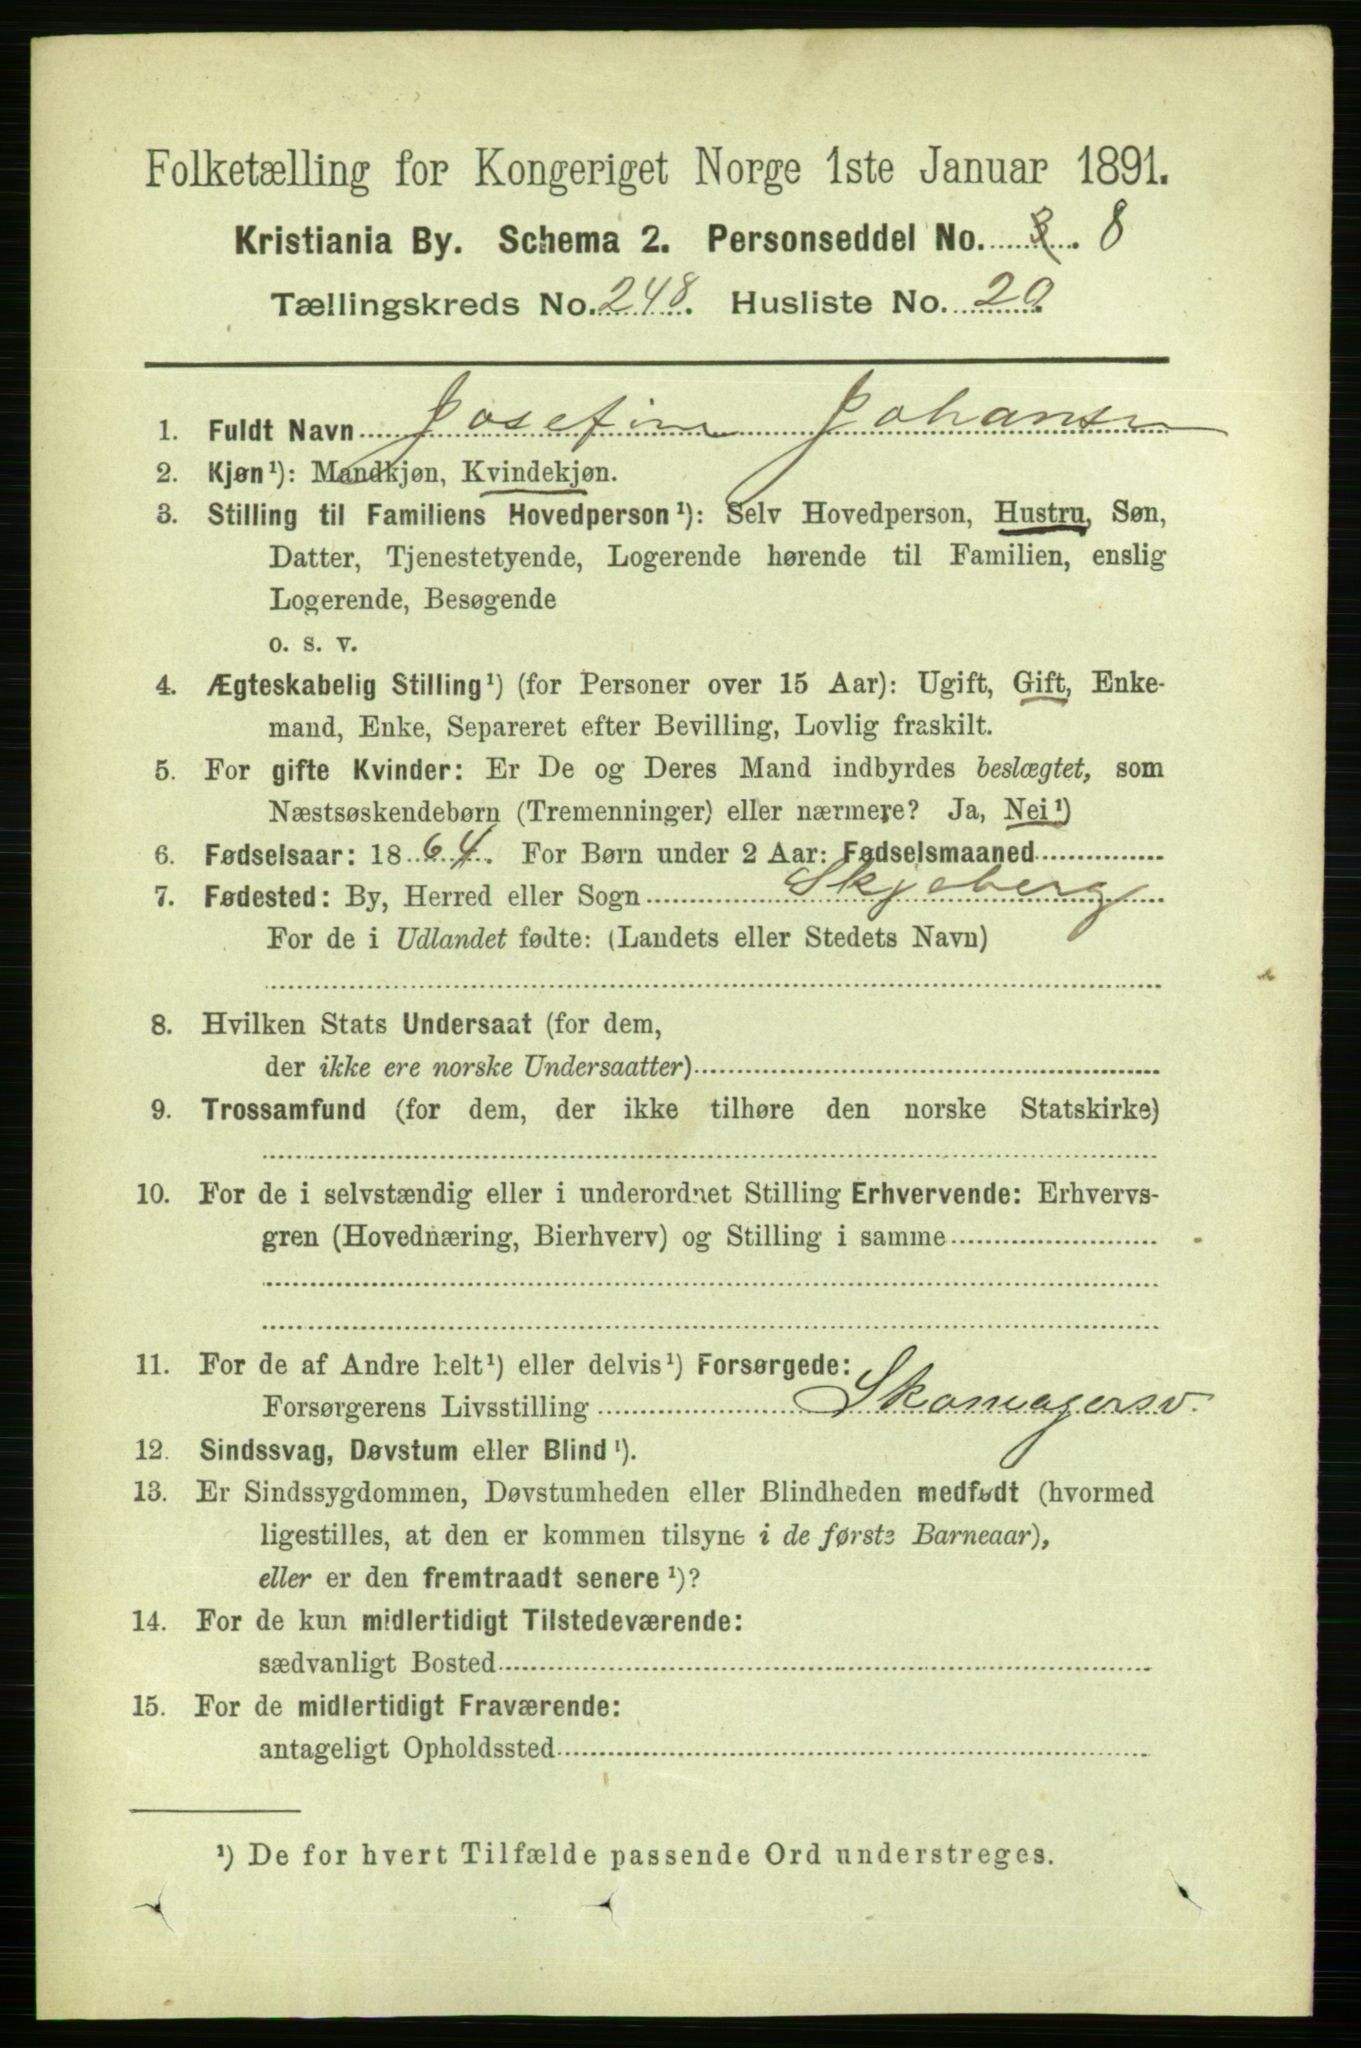 Folketælling for Kongeriget Norge 1ste Januar 1891.
Kristiania By. Schema 2. Personseddel No. 8
Tællingskreds No. 248. Husliste No. 20
1. Fuldt Navn Josefine Johansen
2. Kjøn¹): Mandkjøn, Kvindekjøn.
3. Stilling til Familiens Hovedperson¹): Selv Hovedperson, Hustru, Søn,
Datter, Tjenestetyende, Logerende hørende til Familien, enslig
Logerende, Besøgende
o. s. v.
4. Ægteskabelig Stilling¹) (for Personer over 15 Aar): Ugift, Gift, Enke-
mand, Enke, Separeret efter Bevilling, Lovlig fraskilt.
5. For gifte Kvinder: Er De og Deres Mand indbyrdes beslægtet, som
Næstsøskendebørn (Tremenninger) eller nærmere? Ja, Nei¹)
6. Fødselsaar: 1864. For Børn under 2 Aar: Fødselsmaaned
7. Fødested: By, Herred eller Sogn Skjeberg
For de i Udlandet fødte: (Landets eller Stedets Navn)
8. Hvilken Stats Undersaat (for dem,
der ikke ere norske Undersaatter)
9. Trossamfund (for dem, der ikke tilhøre den norske Statskirke)
10. For de i selvstændig eller i underordnet Stilling Erhvervende: Erhvervs-
gren (Hovednæring, Bierhverv) og Stilling i samme
11. For de af Andre helt¹) eller delvis¹) Forsørgede:
Forsørgerens Livsstilling Skomagersv.
12. Sindssvag, Døvstum eller Blind¹).
13. Er Sindssygdommen, Døvstumheden eller Blindheden medfødt (hvormed
ligestilles, at den er kommen tilsyne i de første Barneaar),
eller er den fremtraadt senere¹)?
14. For de kun midlertidigt Tilstedeværende:
sædvanligt Bosted
15. For de midlertidigt Fraværende:
antageligt Opholdssted
¹) De for hvert Tilfælde passende Ord understreges.